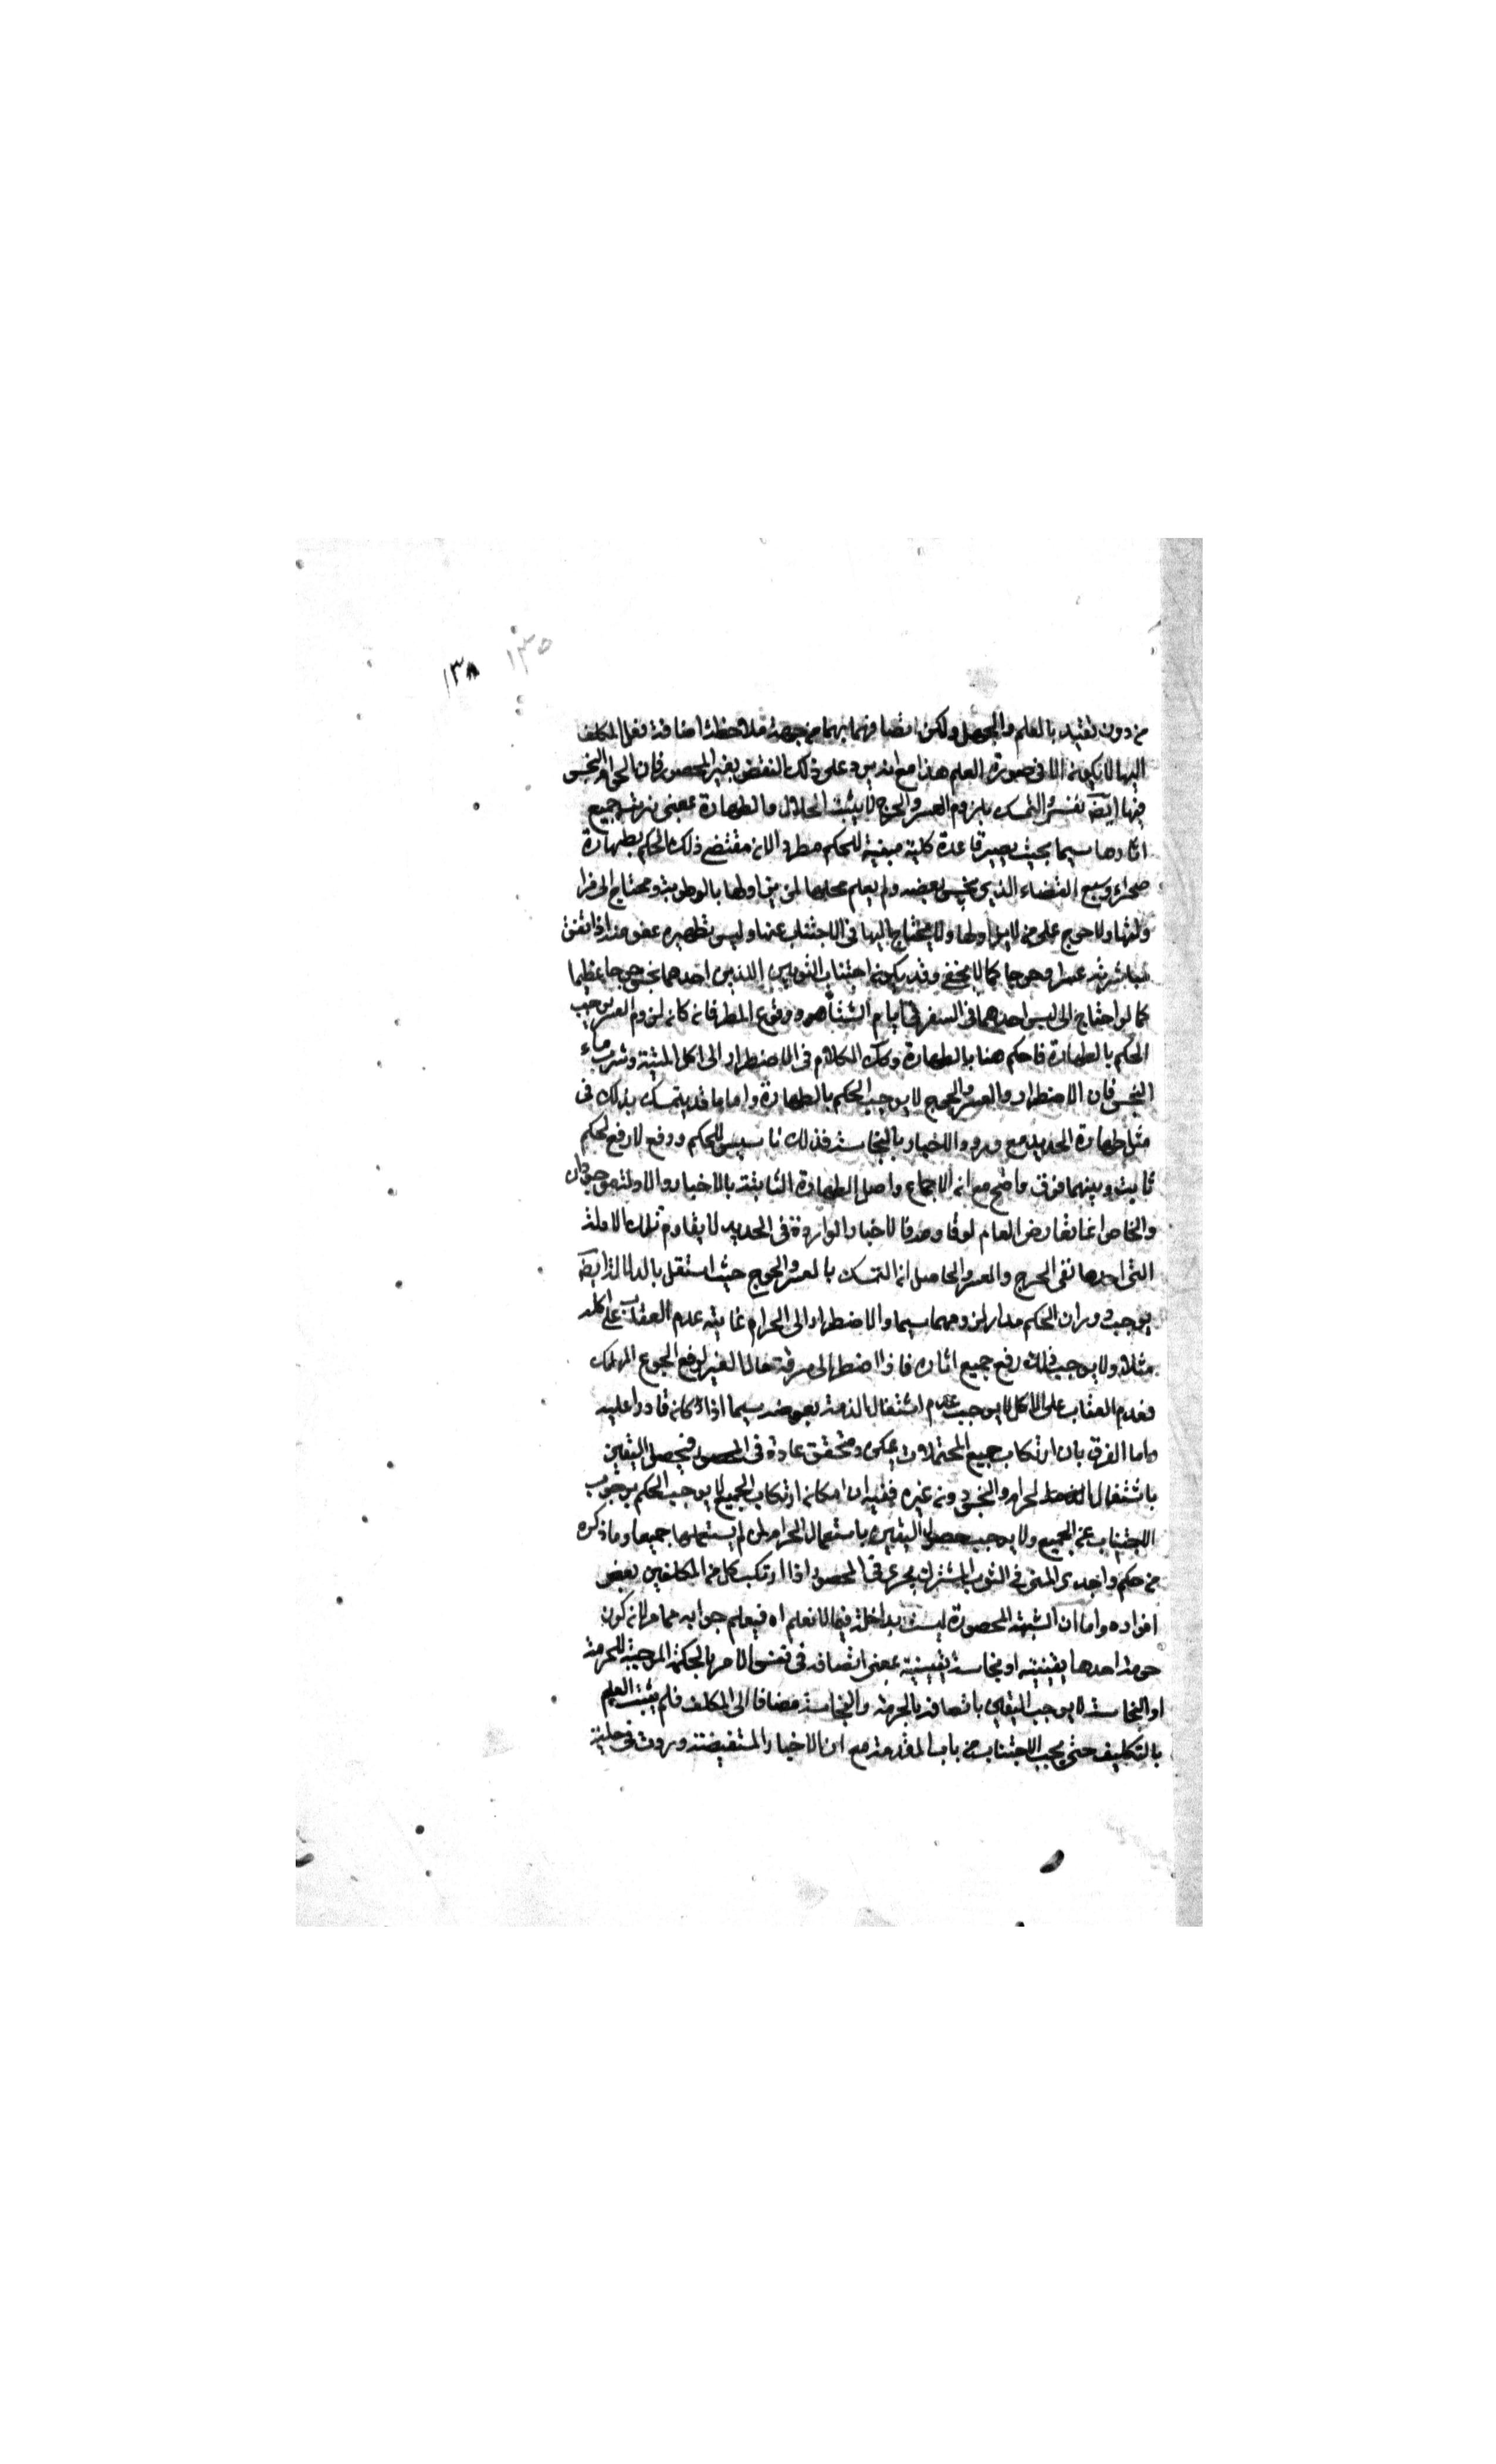 ١٣٥
١٣٨
من دون تقييد بالعلم والجهل ولكن اتصافهما بهما من جهة ملاحظة اضافة فعل المكلف
اليها لا يكون الا في صورة العلم هذا مع انه يرد على ذلك النقض بغير المحصور فان الحرام والنجس
فيها ايضا نفس والتمسك بلزوم العسر والحرج لا يثبت الحلال والطهارة بمعنى ترتب جميع
اثارهما سيما بحيث يصير قاعدة كلية مبنية للحكم مطردا لان مقتضى ذلك الحكم بطهارة
صحراء وسيع الفضاء الذي نجس بعضه ولم يعلم محلها لمن يزاولها بالرطوبة ومحتاج الى
ولا حرج على من لا يزاولها ولا يحتاج اليها في الاجتناب عنها وليس تطهيره عضو منه اذا اتفق
مباشرته عسرا وحرجا كما لا يخفى وقد يكون اجتناب الثوبين اللذين احدهما نجس حرجا عظيما
كما لو احتاج الى لبس احدهما في السفر في ايام الشتاء ووقوع المطر فان كان لزوم العسر يوجب
الحكم بالطهارة فاحكم هنا بالطهارة وكذلك الكلام في الاضطرار الى اكل الميتة وشرب ماء
النجس فان الاضطرار والعسر والحرج لا يوجب الحكم بالطهارة واما ما قد يتمسك بذلك في
مثل طهارة الحديد مع ورود الاخبار بالنجاسة فذلك تاسيس للحكم ودفع لا رفع لحكم
ثابت وبينهما فرق واضح مع ان الاجماع واصل الطهارة الثابتة بالاخبار والادلة موجودان
والخاص انما يعارض العام لو قاومه فالاخبار الواردة في الحديد لا يقاوم تلك الادلة
التي احدها نفى الحرج والعسر والحاصل ان التمسك بالعسر والحرج حيث استقل بالدلالة ايضا
يوجب دوران الحكم مدار لزومهما سيما والاضطرار الى الحرام غايته عدم العقاب على اكله
مثلا ولا يوجب ذلك رفع جميع اثاره فاذا اضطر الى سرقة مال الغير لرفع الجوع المهلك
فعدم العقاب على الاكل لا يوجب عدم اشتغال الذمة بعوضه سيما اذا كان قادرا عليه
واما الفرق بان ارتكاب جميع المحتملات يمكن ومتحقق عادة في المحصور فيحصل اليقين
باشتغال الحرام والنجس دون غيره ففيه ان امكان ارتكاب الجميع لا يوجب الحكم بوجوب
الاجتناب عن الجميع ولا يوجب حصول اليقين باستعمال الحرام لمن لم يستعملها جميعا وما ذكره
من حكم واجدي المني في الثوب المشترك يجري في المحصور اذا ارتكب كل من المكلفين بعض
افراده واما ان الشبهة المحصورة ليست بداخلة فيما لا نعلم اه فيعلم جوابه مما مر لان كون
حرمة احدها يقينية او نجاسة يقينية بمعنى اتصافه في نفس الامر بالحكمة الموجبة للحرمة
او النجاسة لا يوجب اليقين باتصافه بالحرمة والنجاسة مضافا الى المكلف فلم يثبت العلم
بالتكليف حتى يجب الاجتناب من باب المقدمة مع ان الاخبار المستفيضة وردت في حلية